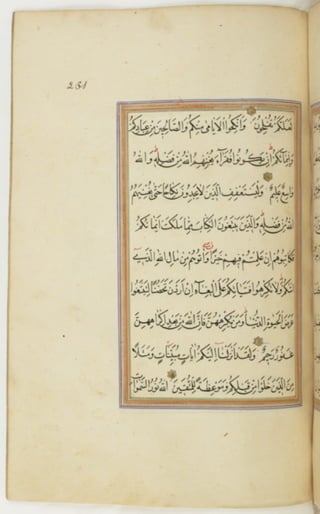 لَعَلَّكُمْ تُفْلِحُونَ وَاَنْكِحُوا الْاَيَامٰى مِنْكُمْ وَالصَّالِحِينَ مِنْ عِبَادِكُمْ
وَاِمَائِكُمْ اِنْ يَكُونُوا فُقَرَاءَ يُغْنِهِمُ اللهُ مِنْ فَضْلِهِ وَاللهُ
وَاسِعٌ عَلِيمٌ وَلْيَسْتَعْفِفِ الَّذِينَ لَا يَجِدُونَ نِكَاحًا حَتّٰى يُغْنِيَهُمُ
اللهُ مِنْ فَضْلِهِ وَالَّذِينَ يَبْتَغُونَ الْكِتَابَ مِمَّا مَلَكَتْ اَيْمَانُكُمْ
فَكَاتِبُوهُمْ اِنْ عَلِمْتُمْ فِيهِمْ خَيْرًا وَاٰتُوهُمْ مِنْ مَالِ اللهِ الَّذِي
اٰتٰيكُمْ وَلَا تُكْرِهُوا فَتَيَاتِكُمْ عَلَى الْبِغَاءِ اِنْ اَرَدْنَ تَحَصُّنًا لِتَبْتَغُوا
عَرَضَ الْحَيٰوةِ الدُّنْيَا وَمَنْ يُكْرِهْهُنَّ فَاِنَّ اللهَ مِنْ بَعْدِ اِكْرَاهِهِنَّ
غَفُورٌ رَحِيمٌ وَلَقَدْ اَنْزَلْنَا اِلَيْكُمْ اٰيَاتٍ مُبَيِّنَاتٍ وَمَثَلًا
مِنَ الَّذِينَ خَلَوْا مِنْ قَبْلِكُمْ وَمَوْعِظَةً لِلْمُتَّقِينَ اَللهُ نُورُ السَّمٰوَاتِ